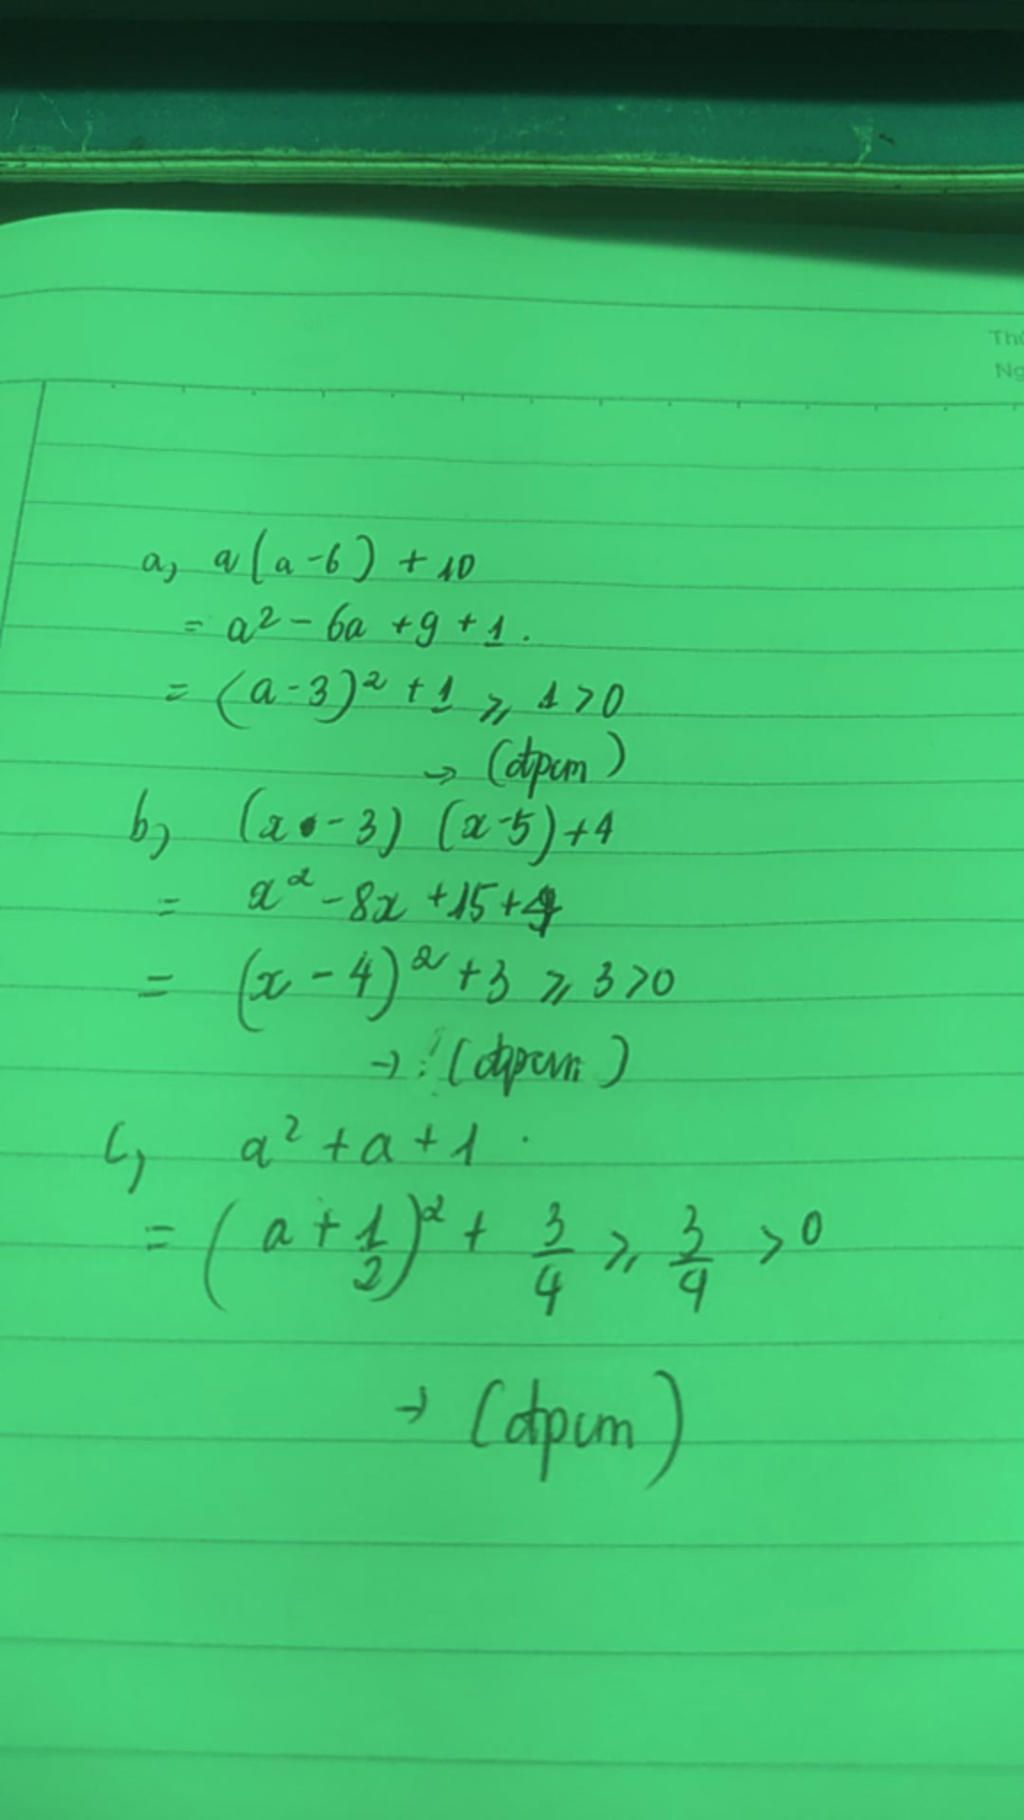 Thứ
Ng
a, a(a-6) + 10
= a² - 6a + 9 + 1.
= (a-3)² + 1 ⩾ 1 > 0
→ (đpcm)
b, (x - 3) (x-5) + 4
= x² - 8x + 15 + 4
= (x - 4)² + 3 ⩾ 3 > 0
→ (đpcm)
c, a² + a + 1.
= (a + 1/2)² + 3/4 ⩾ 3/4 > 0
→ (đpcm)